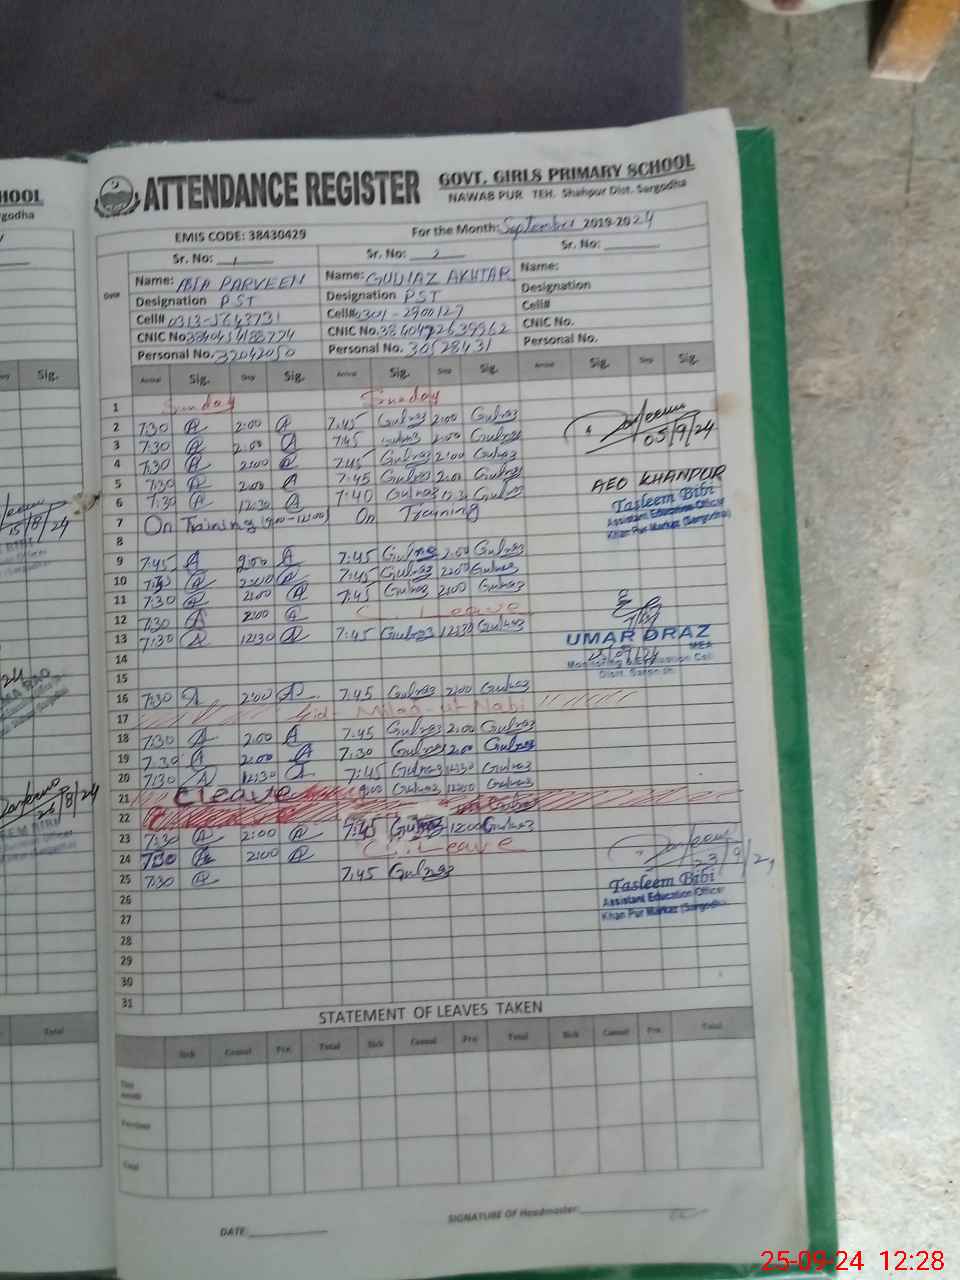 HOOL
rgodha
ATTENDANCE REGISTER
GOVT. GIRLS PRIMARY SCHOOL
NAWAB PUR TEH. Shahpur Dist. Sargodha
EMIS CODE: 38430429
For the Month: September 2019-2024
Sr. No: 1 Sr. No: 2 Sr. No:
Name: PARVEEN Name: GULNAZ AKHTAR Name:
Date
Designation PST Designation PST Designation
Cell# 0313-5643731 Cell# 0301-2900127 Cell#
CNIC No. CNIC No. CNIC No.
Personal No. 32042050 Personal No. 30528431 Personal No.
Sig. Arrival Sig. Stop Sig. Arrival Sig. Stop Sig. Arrival Sig. Stop Sig.
1 Sunday Sunday
2 7:30 A 2:00 A 7:45 Gulnaz 2:00 Gulnaz
3 7:30 A 2:00 A 7:45 Gulnaz 2:00 Gulnaz
05/9/24
4 7:30 A 2:00 A 7:45 Gulnaz 2:00 Gulnaz
5 7:30 A 2:00 A 7:45 Gulnaz 2:00 Gulnaz
AEO KHANPUR
6 7:30 A 12:30 A 7:40 Gulnaz Gulnaz
Tasleem Bibi
7 On Training On Training
Assistant Education Officer
Khan Pur Markaz (Sargodha)
15/8/24
8
9 7:45 A 2:00 A 7:45 Gulnaz 2:00 Gulnaz
10 7:30 A 2:00 A 7:45 Gulnaz 2:00 Gulnaz
11 7:30 A 2:00 A 7:45 Gulnaz 2:00 Gulnaz
12 7:30 A 2:00 A C Leave
13 7:30 A 12:30 A 7:45 Gulnaz 12:30 Gulnaz
UMAR DRAZ
MEA
14
Monitoring & Evaluation Cell
Distt. Sargodha
15
16 7:30 A 2:00 A 7:45 Gulnaz 2:00 Gulnaz
17 Eid Milad-ut-Nabi
18 7:30 A 2:00 A 7:45 Gulnaz 2:00 Gulnaz
19 7:30 A 2:00 A 7:30 Gulnaz 2:00 Gulnaz
20 7:30 A 12:30 A 7:45 Gulnaz 12:30 Gulnaz
26/8/24
21 C leave 9:00 Gulnaz 12:00 Gulnaz
22
23 7:30 A 2:00 A 7:45 Gulnaz 12:00 Gulnaz
24 7:30 A 2:00 A C. Leave
25 7:30 A 7:45 Gulnaz
Tasleem Bibi
Assistant Education Officer
26
Khan Pur Markaz (Sargodha)
27
28
29
30
31
STATEMENT OF LEAVES TAKEN
Total Sick Casual Pre. Total Sick Casual Pre. Total Sick Casual Pre. Total
This month
Previous
Total
DATE:
SIGNATURE OF Headmaster:
25-09-24 12:28